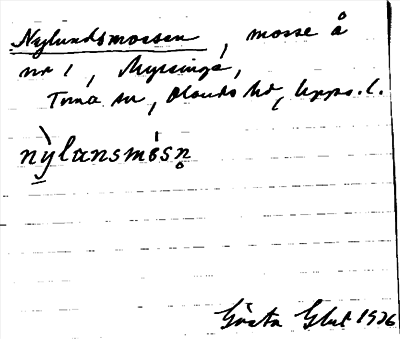 Nylundsmossen, mosse å
nr 1, Myssinge,
Tuna sn, Olands hd, Upps. l.
nỳlansmósn̥
Gösta 1926